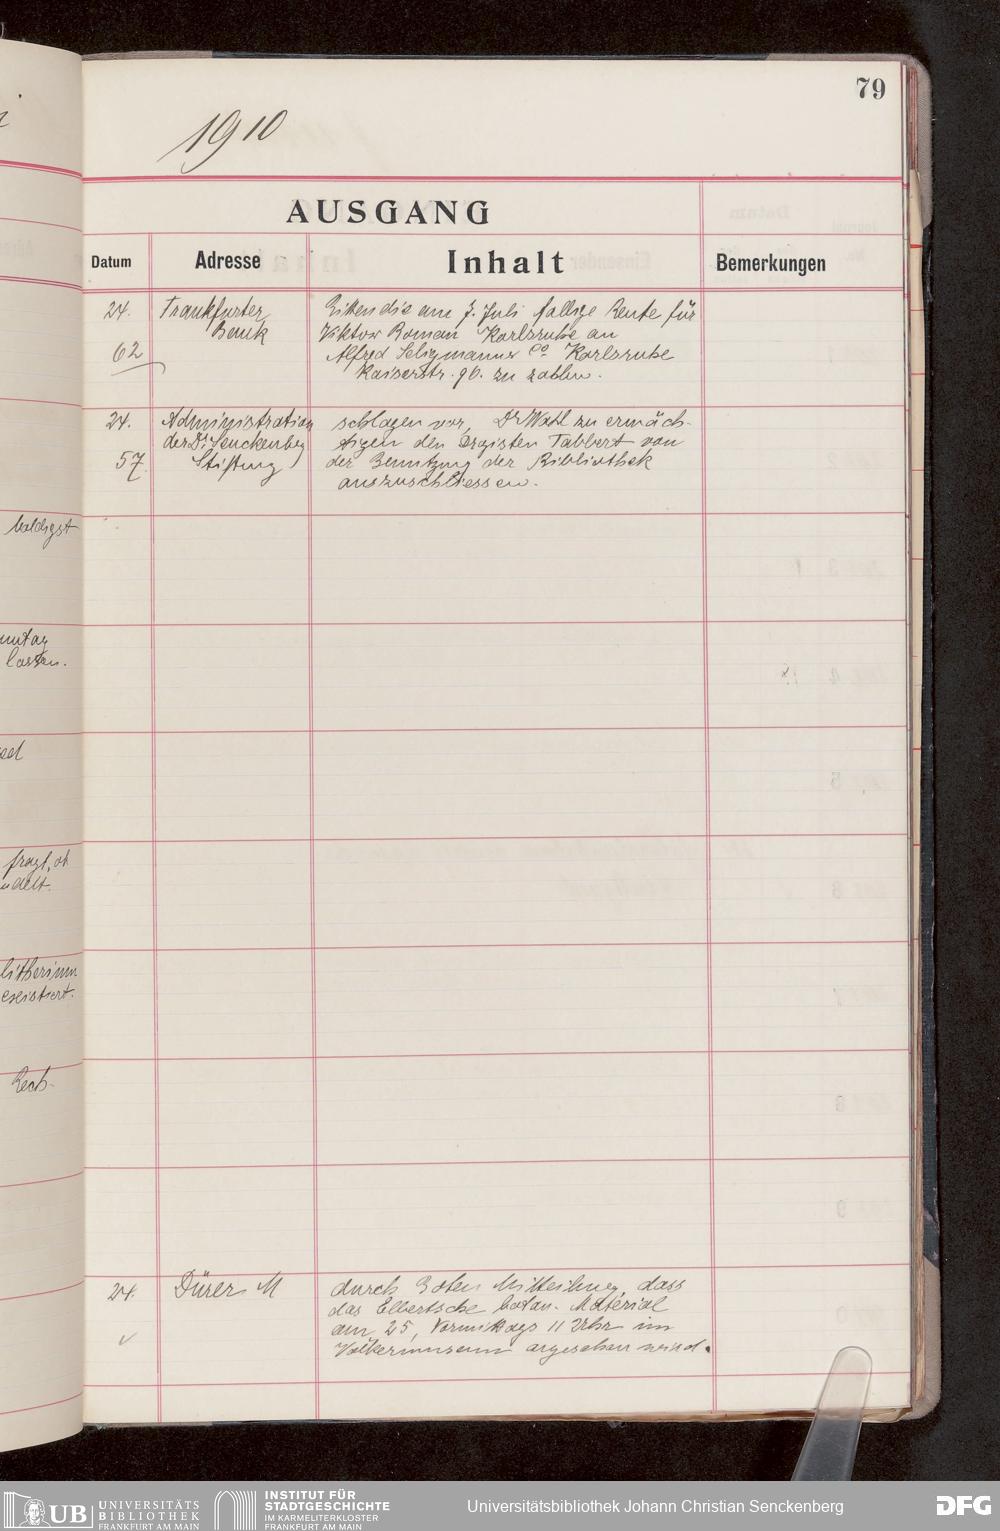 79
1910
AUSGANG
Datum Adresse Inhalt Bemerkungen
24. Frankfurter Bitten die am 7. Juli fallige Rente für
Bank Viktor Roman Karlsruhe an
62 Alfred Seligmann & Co Karlsruhe
Kaiserstr. 96. zu zahlen.
24. Administration schlagen vor, Dr Wahl zu ermäch-
der Dr. Senckenbg tigen den Tabbert von
57 Stiftung der Benutzung der Bibliothek
auszuschliessen.
baldigst
lassen.
fragt, ob
existiert.
Rech-
24. Dürer M durch Boten Mitteilung, dass
das Elbertsche botan. Material
am 25, Vormittags 11 Uhr im
Völkermuseum angesehen wird.
UB UNIVERSITÄTS
BIBLIOTHEK
FRANKFURT AM MAIN
INSTITUT FÜR
STADTGESCHICHTE
IM KARMELITERKLOSTER
FRANKFURT AM MAIN
Universitätsbibliothek Johann Christian Senckenberg
DFG